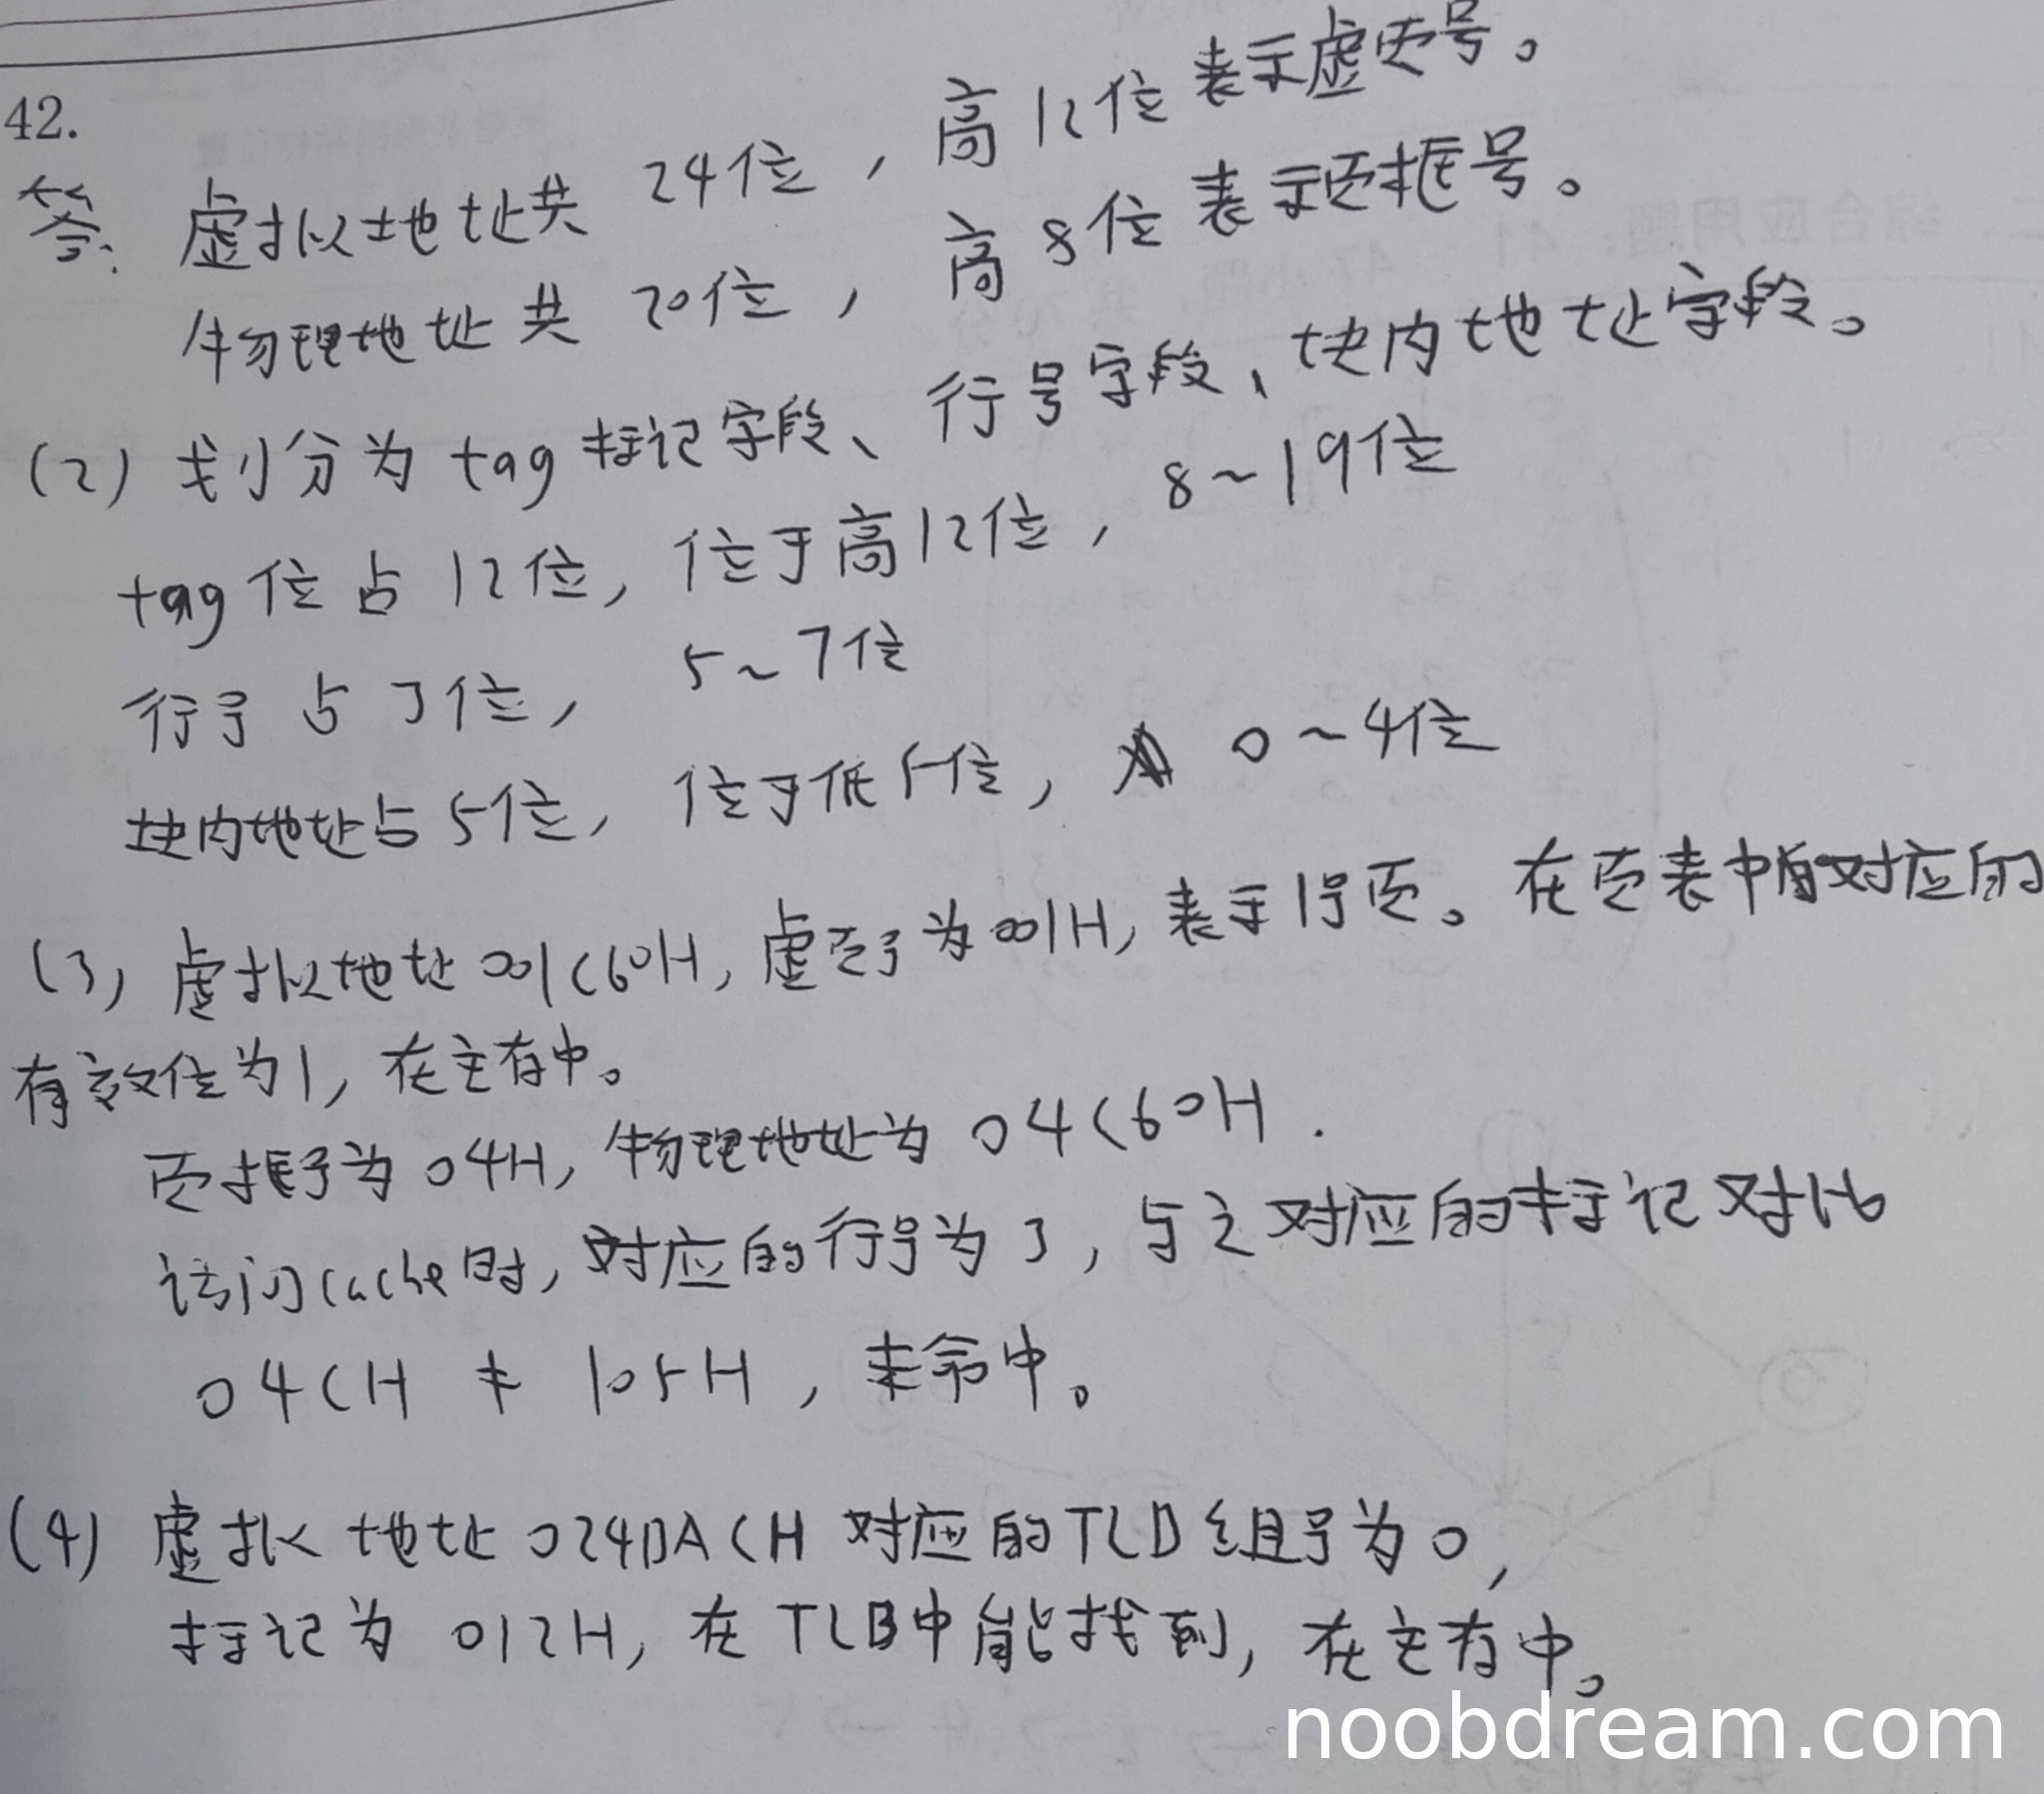 42.
答: 虚拟地址共 24位, 高12位表示虚页号。
物理地址共 20位, 高8位表示页框号。
(2) 划分为tag标记字段、行号字段、块内地址字段。
tag位占12位, 位于高12位, 8~19位
行号占3位, 5~7位
块内地址占5位, 位于低5位, 0~4位
(3) 虚拟地址001C60H, 虚页号为001H, 表示1号页。在页表中对应的
有效位为1, 在主存中。
页框号为04H, 物理地址为04C60H.
访问cache时, 对应的行号为3, 与之对应的标记对比
04CH ≠ 105H, 未命中。
(4) 虚拟地址024BACH对应的TLB组号为0,
标记为012H, 在TLB中能找到, 在主存中。
noobdream.com